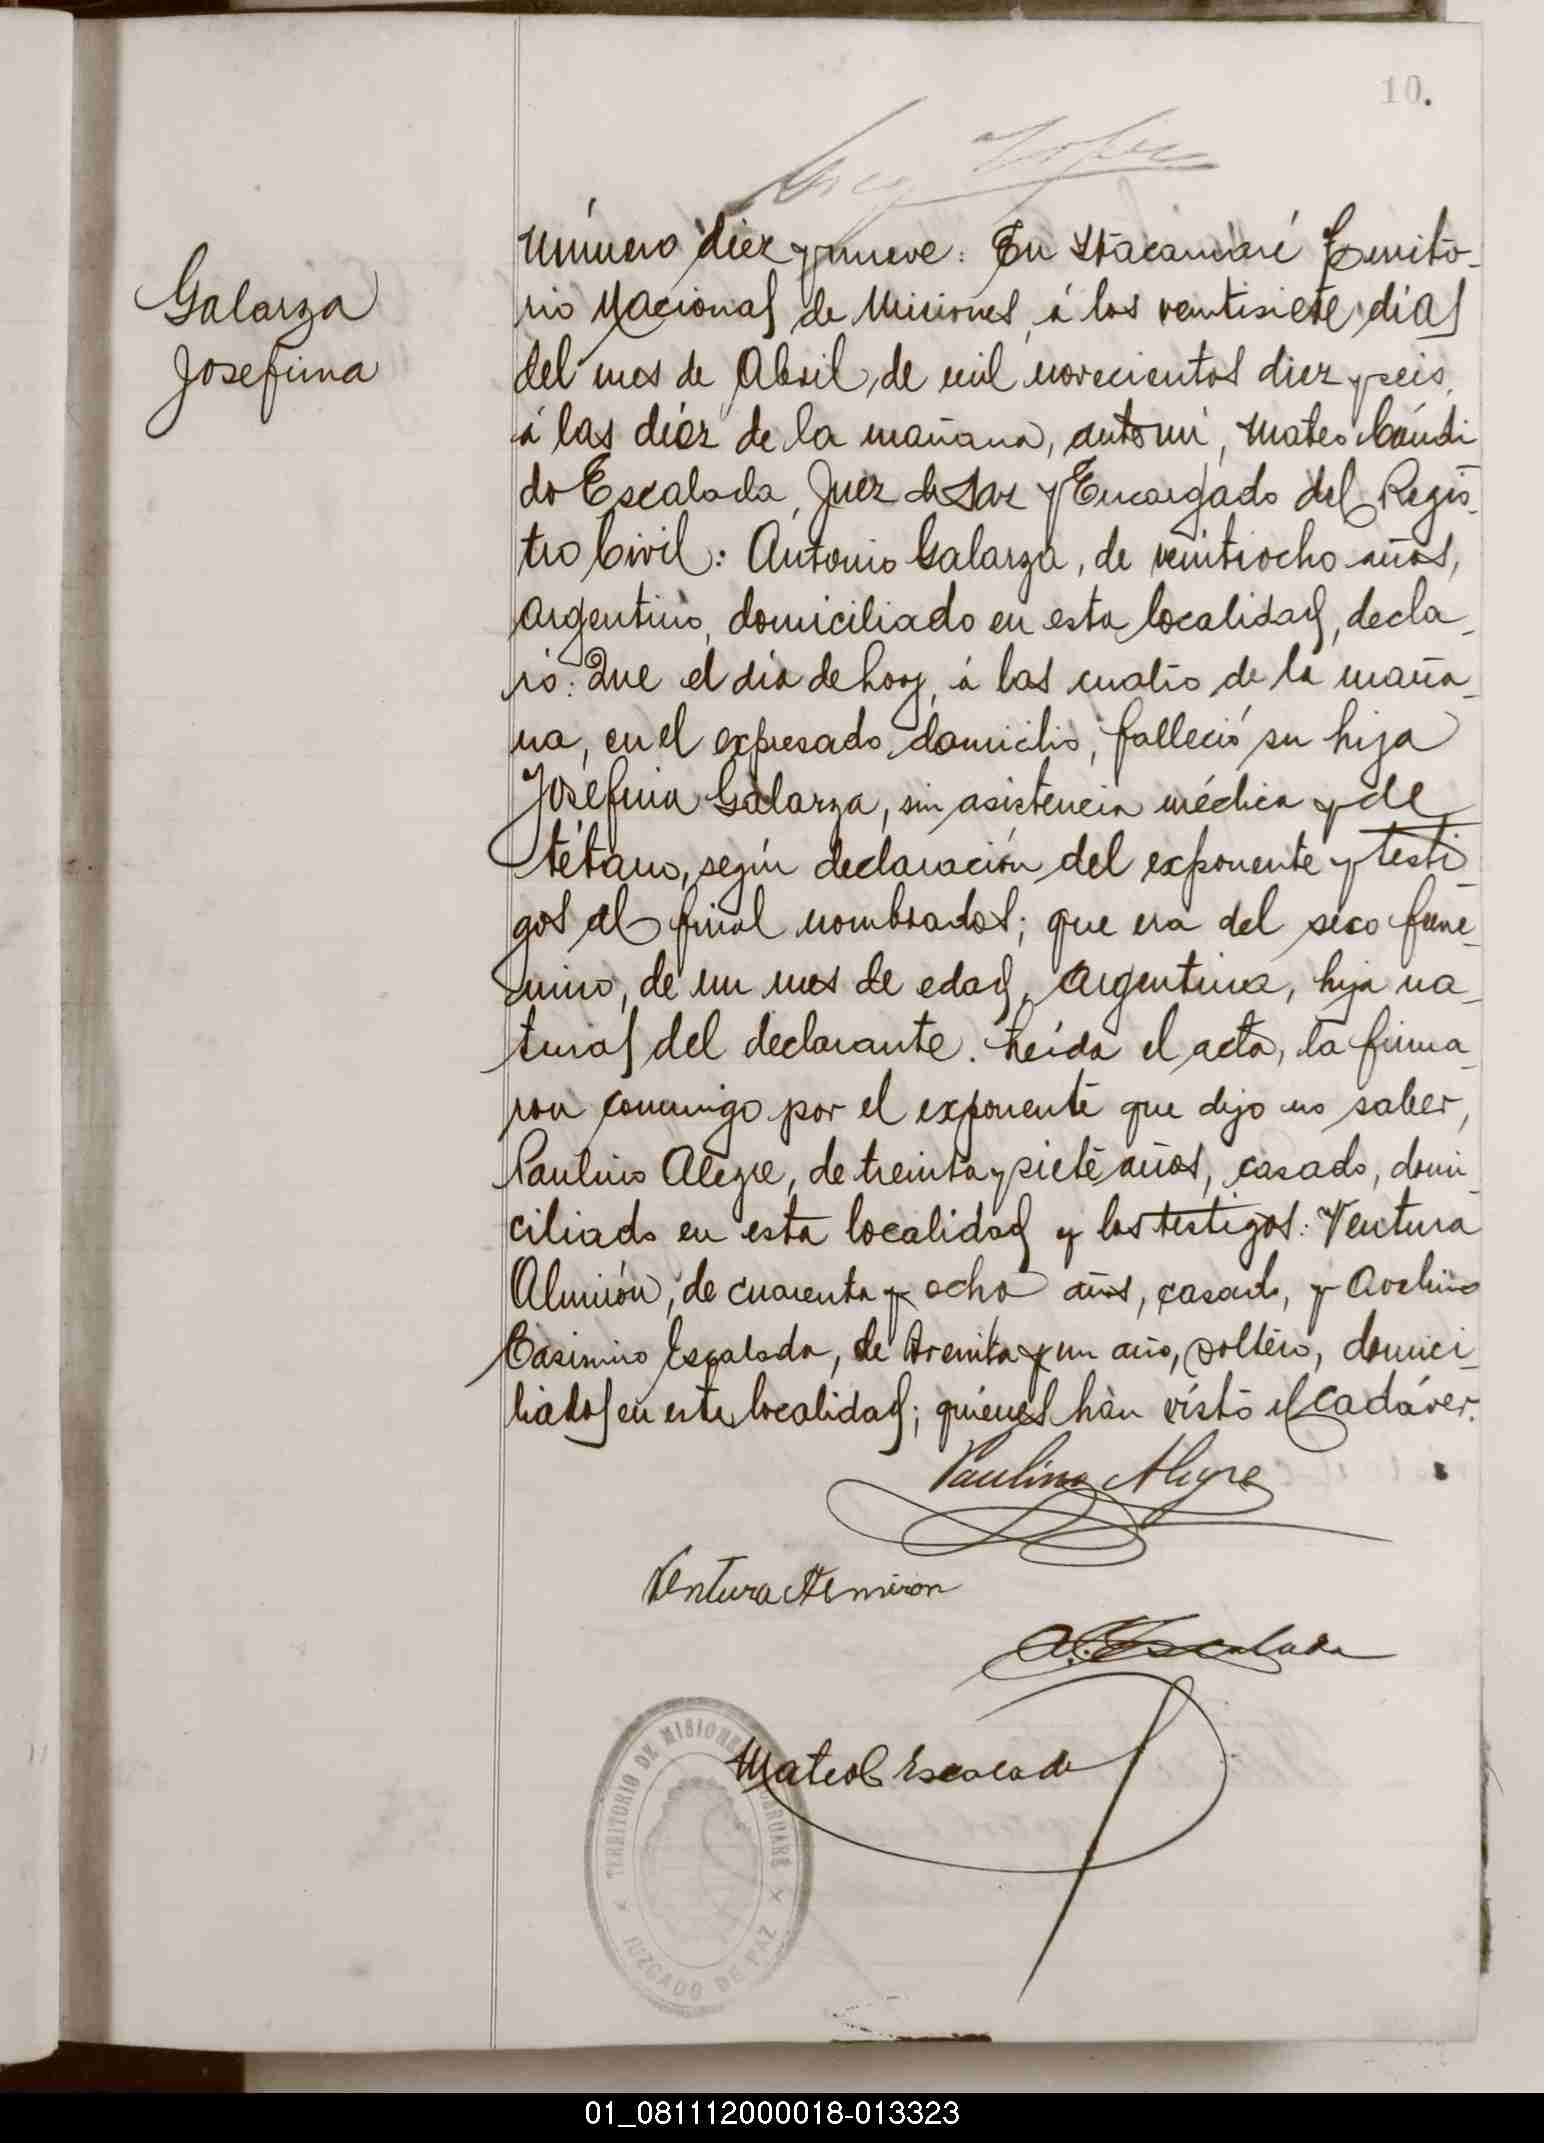 10.
Galarza
Josefina
Número diez y nueve: En Itacaruaré Territo-
rio Nacional de Misiones, á los veintisiete días
del mes de Abril, de mil novecientos diez y seis,
á las diéz de la mañana, ante mi, Mateo Cándi
do Escalada, Juez de Paz y Encargado del Regis-
tro Civil: Antonio Galarza, de veintiocho años,
argentino, domiciliado en esta localidad, decla-
ró: Que el día de hoy, á las cuatro de la maña-
na, en el expresado domicilio, falleció su hija
Josefina Galarza, sin asistencia médica y de
tétano, según declaración del exponente y testi-
gos al final nombrados; que era del sexo feme-
nino, de un mes de edad, argentina, hija na-
tural del declarante. Leída el acta, la firma-
ron conmigo por el exponente que dijo no saber,
Paulino Alegre, de treinta y siete años, casado, domi-
ciliado en esta localidad y los testigos: Ventura
Almirón, de cuarenta y ocho años, casado, y Avelino
Casimiro Escalada, de treinta y un año, soltero, domici-
liados en esta localidad; quiénes han visto el cadáver.
Paulino Alegre
Ventura Almiron
A. C. Escalada
Mateo C Escalada
TERRITORIO DE MISIONES
JUZGADO DE PAZ
01_081112000018-013323